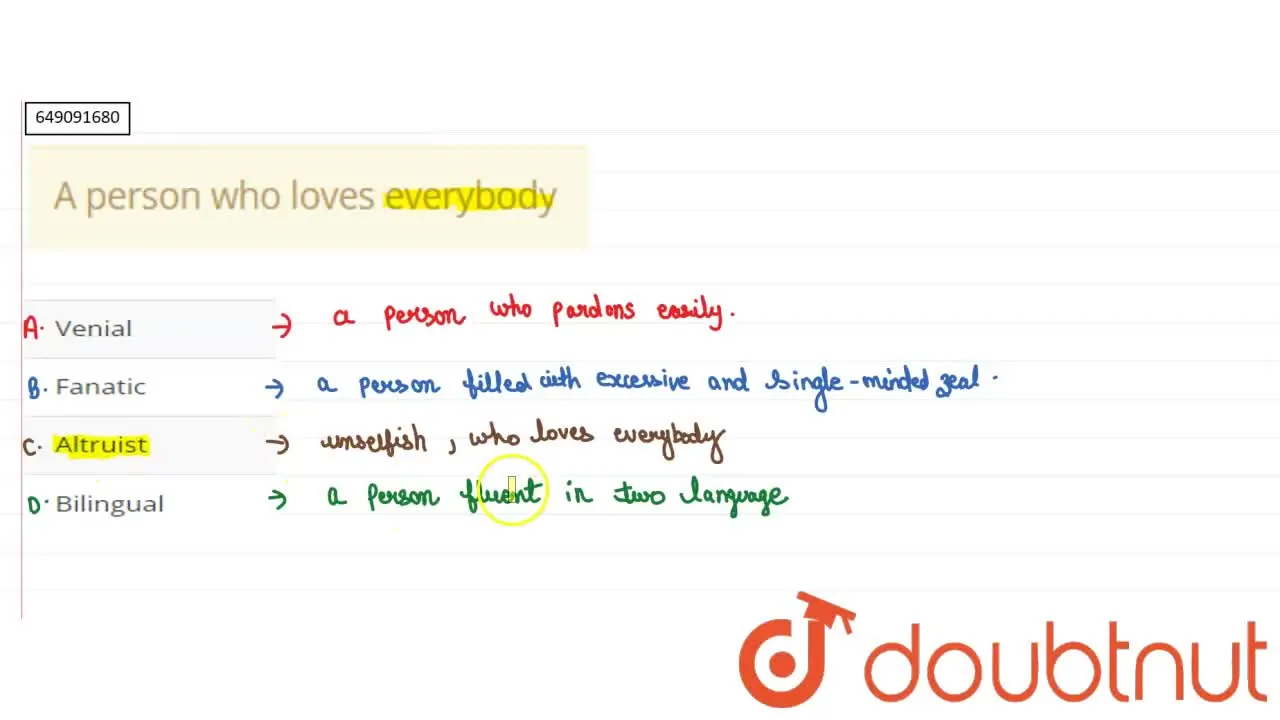 649091680
A person who loves everybody
A. Venial → a person who pardons easily.
B. Fanatic → a person filled with excessive and single-minded zeal.
C. Altruist → unselfish, who loves everybody
D. Bilingual → a person fluent in two language
doubtnut